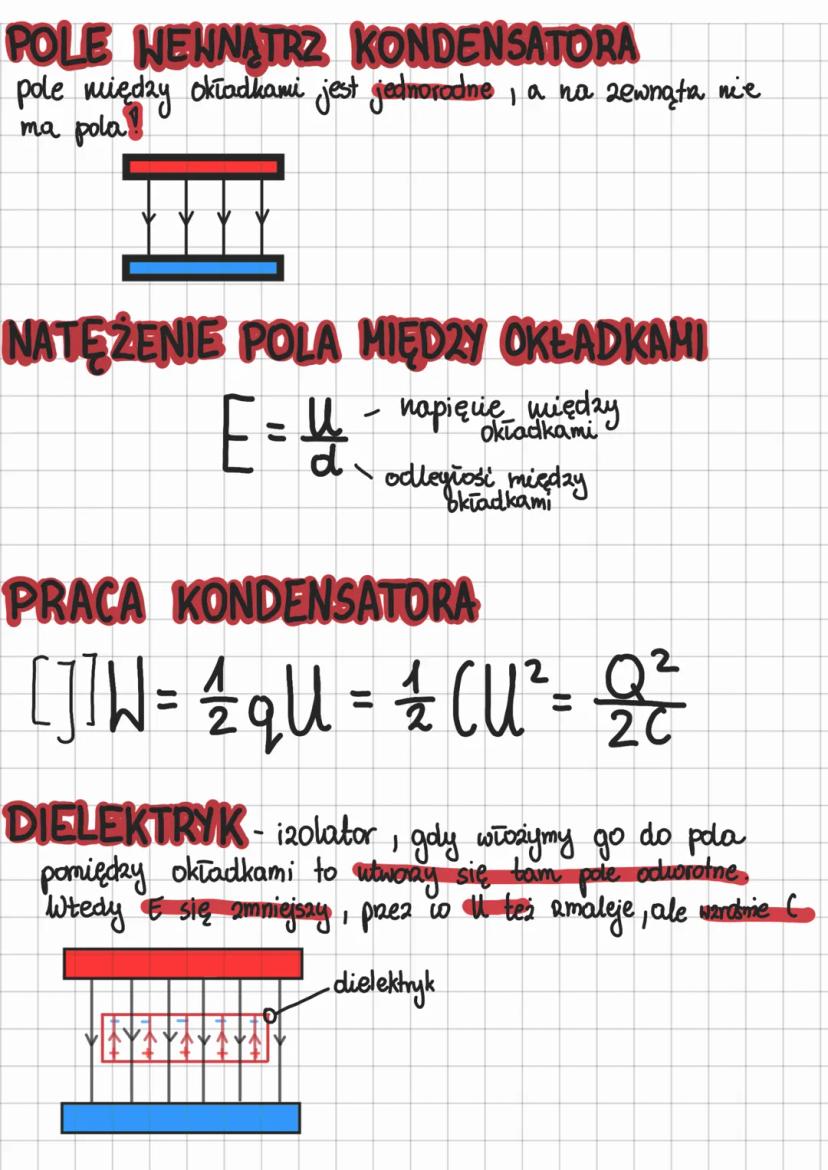 POLE WEWNĄTRZ KONDENSATORA
pole między okładkami jest jednorodne, a na zewnątrz nie
ma pola!
NATĘŻENIE POLA MIĘDZY OKŁADKAMI
E = U/d
napięcie między
okładkami
odległość między
okładkami
PRACA KONDENSATORA
[J] W = 1/2 qU = 1/2 CU² = Q²/2C
DIELEKTRYK - izolator, gdy włożymy go do pola
pomiędzy okładkami to utworzy się tam pole odwrotne.
Wtedy E się zmniejszy, przez co U też zmaleje, ale wzrośnie C
dielektryk